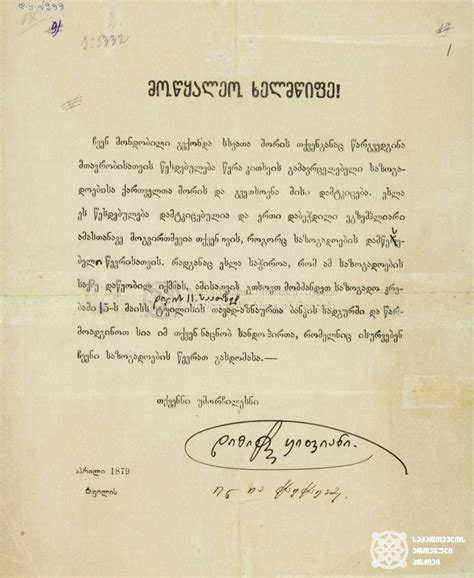 5332
1
მოწყალეო ხელმწიფე!
ჩვენ მონდობილი გვქონდა სხვათა შორის თქვენგანაც წარგვედგინა
მთავრობისათვის წესდებულება წერა კითხვის გამავრცელებელი საზოგა-
დოებისა ქართველთა შორის და გვეთხოვნა მისი დამტკიცება. ეხლა
ეს წესდებულება დამტკიცებულია და ერთი დაბეჭდილი ეგზემპლიარი
ამასთანავე მოგვირთმევია თქვენთვის, როგორც საზოგადოების დამწყ-
ებელი წევრისათვის. რადგანაც ეხლა საჭიროა, რომ ამ საზოგადოების
საქმე დაწყობილ იქმნას, ამისათვის გთხოვთ მობძანდეთ საზოგადო კრე-
დილის 11 საათზედ
ბაში 15-ს მაისს ტფილისის თავად-აზნაურთა ბანკის სადგურში და წარ-
მოადგინოთ სია იმ თქვენ ნაცნობ სანდო პირთა, რომელნიც ისურვებენ
ჩვენი საზოგადოების წევრათ გახდომასა.—
თქვენნი უმორჩილესნი
დიმიტრი ყიფიანი.
აპრილი 1879
ტფილისი
საქართველოს
ეროვნული
არქივი